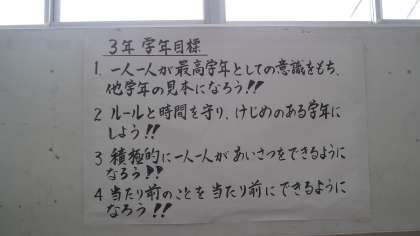 3年 学年目標
1. 一人一人が最高学年としての意識をもち、
他学年の見本になろう!!
2 ルールと時間を守り、けじめのある学年に
しよう!!
3 積極的に一人一人があいさつをできるように
なろう!!
4 当たり前のことを当たり前にできるように
なろう!!